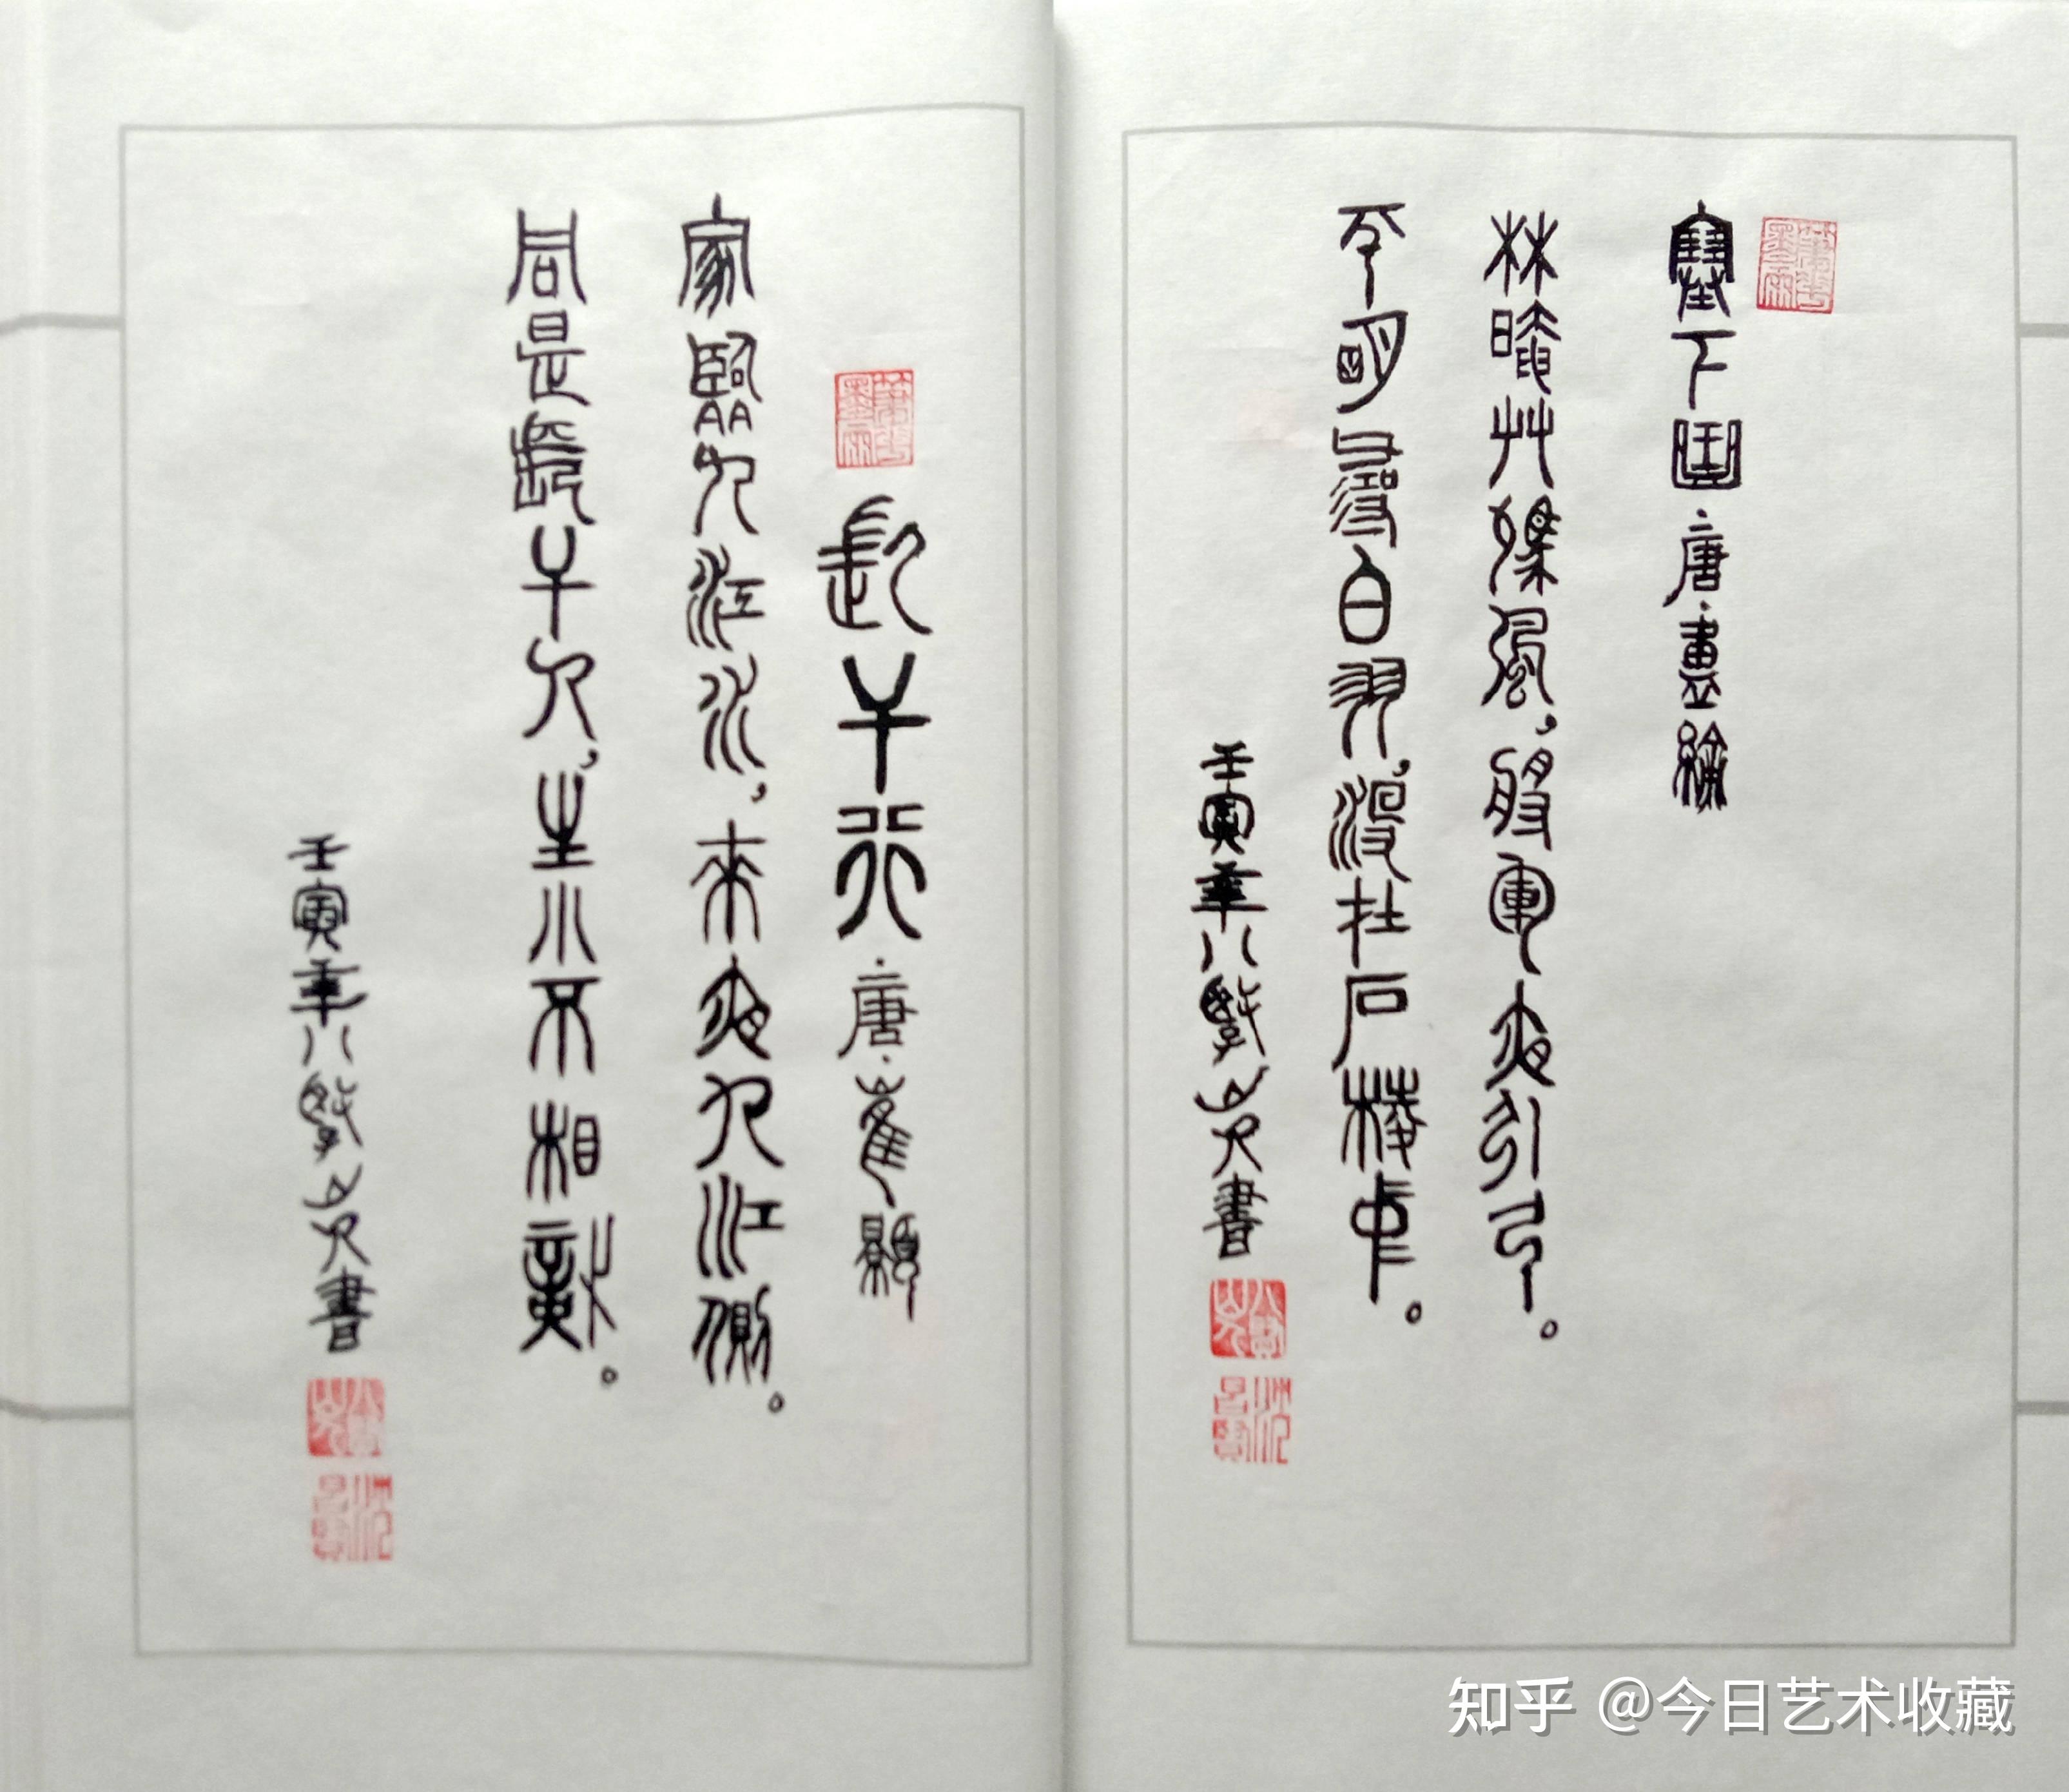 塞下曲·唐·盧綸
林暗艸驚風，將軍夜引弓。
平明尋白羽，沒在石棱中。
壬寅年八山人書
長干行·唐·崔顥
家臨九江水，來夜九江側。
同是長干人，生小不相識。
壬寅年八山人書
知乎 @今日艺术收藏